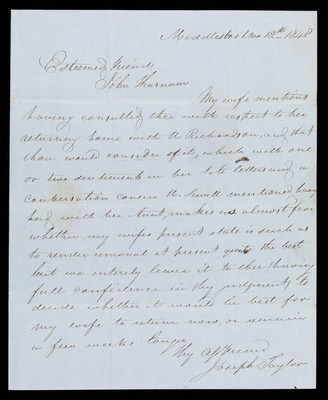 Middlesbro' 1 mo 18th 1848
Esteemed Friend
John Thurnam
My wife mentions
having consulted thee with respect to her
returning home with H Richardson, and that
thou would consider of it, which with one
or two sentences in her late letters and a
conversation cousin M. Sewell mentioned having
had with her Aunt, makes us almost fear
whether my wifes present state is such as
to render removal at present quite the best
but we entirely leave it to thee (having
full confidence in thy judgment) to
decide whether it would be best for
my wife to return now, or remain
a few weeks longer
Thy Aff Friend
Joseph Taylor